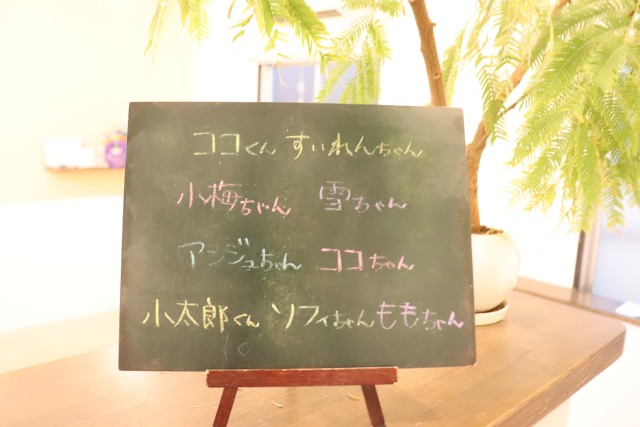 ココくん すいれんちゃん
小梅ちゃん 雪ちゃん
アンジュちゃん ココちゃん
小太郎くん ソフィちゃん ももちゃん